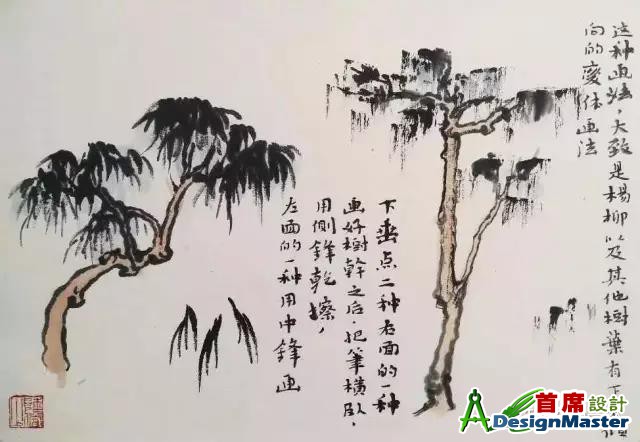 这种画法，大致是楊柳以及其他樹葉有下
向的变体画法
下垂点二种右面的一种
画好樹幹之后，把筆横卧，
用側鋒乾擦，
左面的一种用中鋒画
首席設計
ADesignMaster